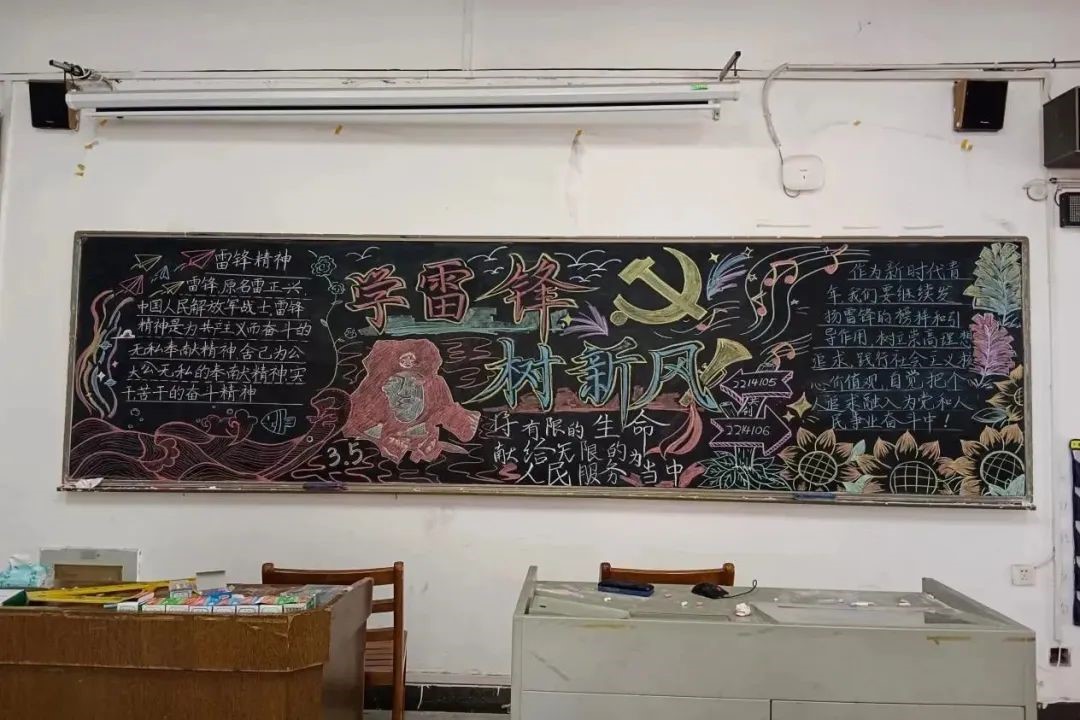 雷锋精神
雷锋,原名雷正兴
中国人民解放军战士,雷锋
精神是为共产主义而奋斗的
无私奉献精神,舍己为公
大公无私的奉献精神,实
干苦干的奋斗精神
学雷锋
树新风
3.5
将有限的生命
献给无限的为
人民服务当中
2214105
2214106
作为新时代青
年,我们要继续发
扬雷锋的榜样和引
导作用,树立崇高理想
追求,践行社会主义核
心价值观,自觉把个
人追求融入为党和人
民事业奋斗中!